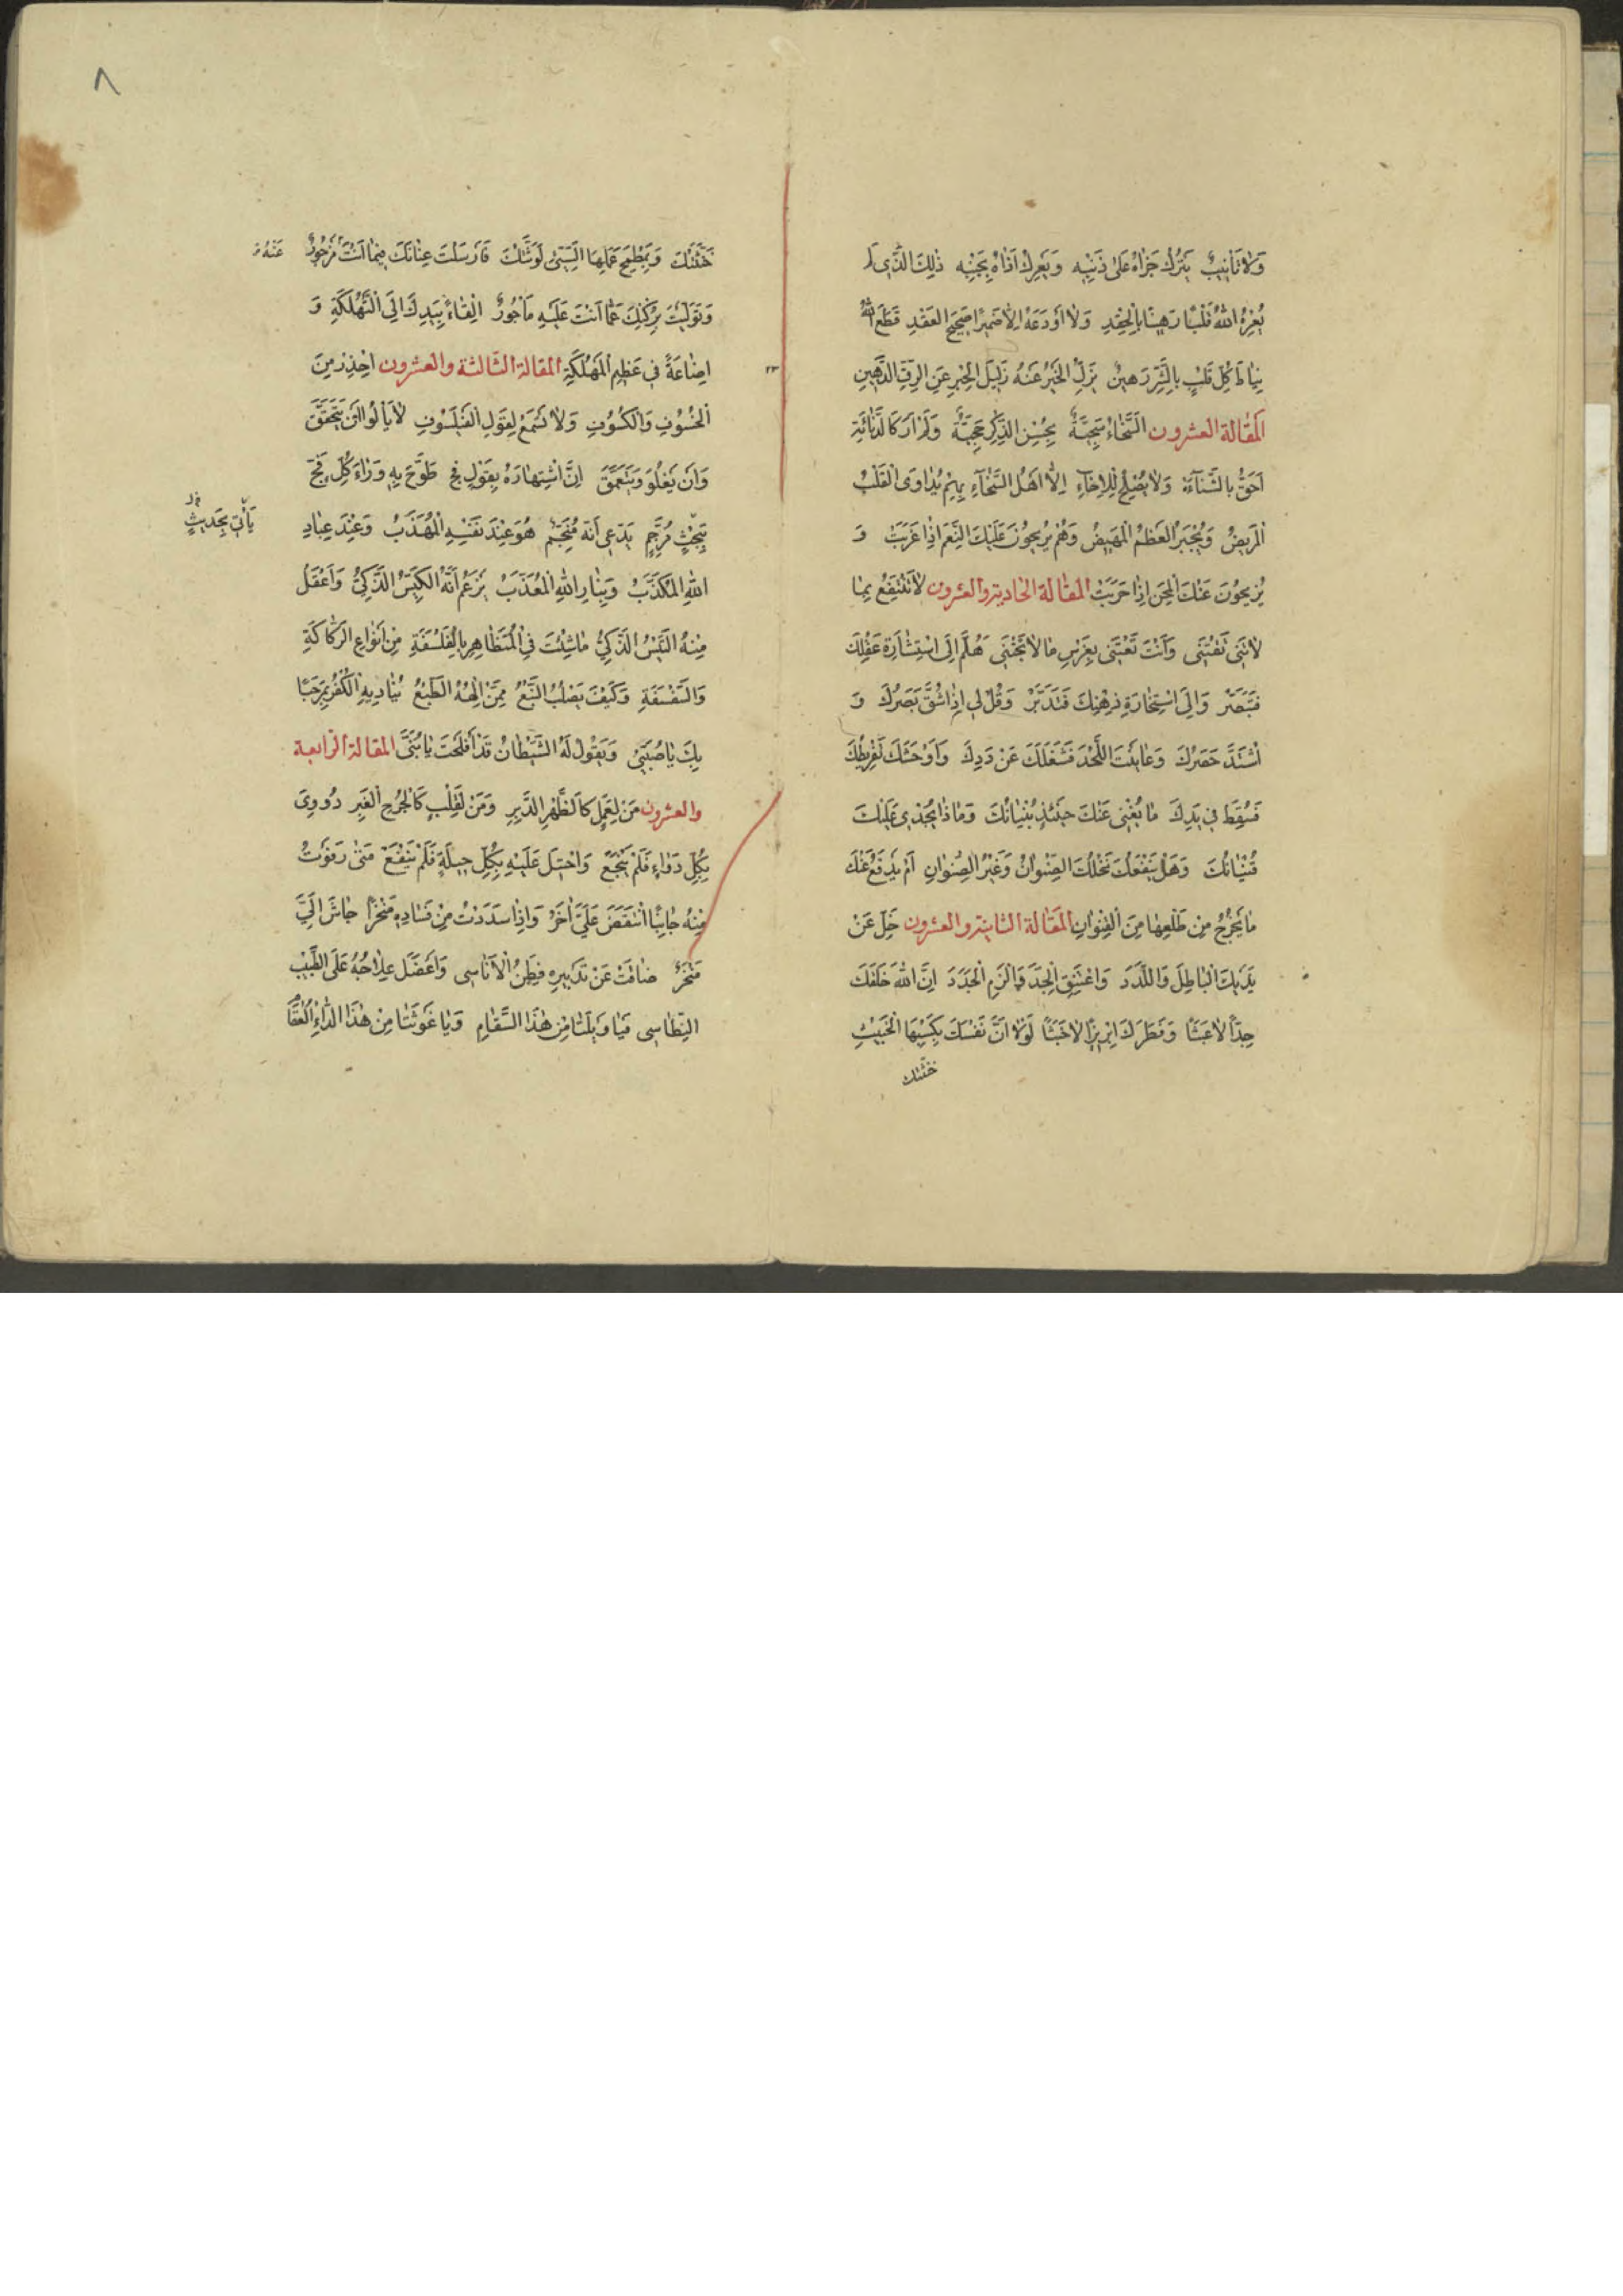 وَلَا تَأْنِيبٌ يَتْرُكُ جَزَاهُ عَلَىٰ ذَنْبِهِ وَيَعْرِكُ اَذَاهُ بِجَنْبِهِ ذٰلِكَ الَّذِى لَمْ
يُعِرْهُ اللّٰهُ قَلْبًا رَهِينًا بِالْحِقْدِ وَلَا اَوْدَعَهُ اِلَّا ضَمِيرًا صَحِيحَ الْعَقْدِ قَطَعَ اللّٰهُ
نِيَاطَ كُلِّ قَلْبٍ بِالشَّرِّ رَهِينٌ يَزِلُّ الْخَيْرُ عَنْهُ زَلِيلَ الْحِبْرِ عَنِ الرَّقِّ الدَّهِينِ
اَلْمَقَالَةُ العشرون السَّخَاءُ سَجِيَّةٌ بِحُسْنِ الذِّكْرِ حَجِيَّةٌ وَلَمْ اَرَ كَالدَّنَائَةِ
اَحَقَّ بِالشَّنَآءَةِ وَلَا يَصْلُحُ لِلْاِخَآءِ اِلَّا اَهْلُ السَّخَآءِ بِهِمْ يُدَاوَى الْقَلْبُ
الْمَرِيضُ وَيُجْبَرُ الْعَظْمُ الْمَهِيضُ وَهُمْ يُرِيحُونَ عَلَيْكَ النِّعَمَ اِذَا عَزَبَتْ وَ
يُزِيحُونَ عَنْكَ الْمِحَنَ اِذَا حَزَبَتْ المقالة الحادية والعشرون لَا تَنْتَفِعُ بِمَا
لَا تَنِى تَقْتَنِى وَاَنْتَ تَعْتَنِى بِغَرْسِ مَا لَا تَجْتَنِى هَلُمَّ اِلَى اسْتِشَارَةِ عَقْلِكَ
فَتَبَصَّرْ وَاِلَى اسْتِخَارَةِ ذِهْنِكَ فَتَدَبَّرْ وَقُلْ لِى اِذَا شُقَّ بَصَرُكَ وَ
اشْتَدَّ حَصَرُكَ وَعَايَنْتَ اللَّحْدَ فَشَغَلَكَ عَنْ دَدِكَ وَاَوْحَشَكَ تَفْرِيطُكَ
فَسُقِطَ فِى يَدِكَ مَا يُغْنِى عَنْكَ حِينَئِذٍ بُنْيَانُكَ وَمَاذَا يُجْدِى عَلَيْكَ
قُنْيَانُكَ وَهَلْ يَنْفَعُكَ نَخْلُكَ الصِّنْوَانُ وَغَيْرُ الصِّنْوَانِ اَمْ يَدْفَعُ عَنْكَ
مَا يَخْرُجُ مِنْ طَلْعِهَا مِنَ الْقِنْوَانِ المقالة الثانية والعشرون خَلِّ عَنْ
يَدَيْكَ الْبَاطِلَ وَاللَّدَدَ وَاعْتَنِقِ الْجِدَّ وَالْزَمِ الْجَدَدَ اِنَّ اللّٰهَ خَلَقَكَ
جِدًّا لَا عَبَثًا وَفَطَرَكَ اِبْرِيزًا لَا خَبَثًا لَوْلَا اَنَّ نَفْسَكَ بِكَسْبِهَا الْخَبِيثِ
خبّثتك
٨
خَبَّثَتْكَ وَبِلَطْخِ عَمَلِهَا السَّيِّئِ لَوَّثَتْكَ فَاَرْسَلْتَ عِنَانَكَ فِيمَا اَنْتَ مَزْجُورٌ عَنْهُ
وَتَوَلَّيْتَ بِرُكْنِكَ عَمَّا اَنْتَ عَلَيْهِ مَأْجُورٌ اِلْقَاءً بِيَدِكَ اِلَى التَّهْلُكَةِ وَ
٢٣
اِضَاعَةً فِى عَظِيمِ الْمَهْلَكَةِ المقالة الثالثة والعشرون اِحْذِرْ مِنَ
الْخُسُوفِ وَالْكُسُوفِ وَلَا تَسْمَعْ لِقَوْلِ الْفَيْلَسُوفِ لَا يَأْلُوا اَنْ يَتَحَمَّقَ
وَاَنْ يَغْلُوَ وَيَتَعَمَّقَ اِنَّ اشْتِهَارَهُ بِقَوْلٍ فِجٍّ طَوَّحَ بِهِ وَرَاءَ كُلِّ فَجٍّ
يَأْتِى بِحَدِيثٍ
مُرَجَّمٍ يَدَّعِى اَنَّهُ مُنَجِّمٌ هُوَ عِنْدَ نَفْسِهِ الْمُهَذَّبُ وَعِنْدَ عِبَادِ
اللّٰهِ الْمُكَذَّبُ وَبِنَارِ اللّٰهِ الْمُعَذَّبُ يَزْعُمُ اَنَّهُ الْكَيِّسُ الذَّكِىُّ وَاَعْقَلُ
مِنْهُ التَّيْسُ الذَّكِىُّ مَا شِئْتَ فِى الْمُتَظَاهِرِ بِالْفَلْسَفَةِ مِنْ اَنْوَاعِ الرَّكَاكَةِ
وَالسَّفْسَفَةِ وَكَيْفَ يَصْلُبُ النَّبْعُ مِمَّنْ اِلٰهُهُ الطَّبْعُ يُنَادِيهِ الْكُفْرُ مَرْحَبًا
بِكَ يَا صُبَيَّ وَيَقُولُ لَهُ الشَّيْطَانُ قَدْ اَفْلَحْتَ يَا بُنَىَّ المقالة الرابعة
والعشرون مَنْ لِعَمَلٍ كَالظَّهْرِ الدَّبِرِ وَمَنْ لِقَلْبٍ كَالْجُرْحِ الْغَبِرِ دُووِىَ
بِكُلِّ دَوَاءٍ فَلَمْ يَنْجَعْ وَاحْتِيلَ عَلَيْهِ بِكُلِّ حِيلَةٍ فَلَمْ يَنْفَعْ مَتٰى رَفَوْتُ
مِنْهُ جَانِبًا انْتَقَضَ عَلَىَّ اٰخَرُ وَاِذَا سَدَدْتُ مِنْ فَسَادِهِ مَنْخِرًا جَاشَ اِلَىَّ
مَنْخِرٌ ضَاقَتْ عَنْ تَدْبِيرِهِ فِطَنُ الْاَنَاسِى وَاَعْضَلَ عِلَاجُهُ عَلَى الطَّبِيبِ
النِّطَاسِى فَيَا وَيْلَتَا مِنْ هٰذَا السَّقَامِ وَيَا غَوْثَتَا مِنْ هٰذَا الدَّاءِ الْعُقَامِ